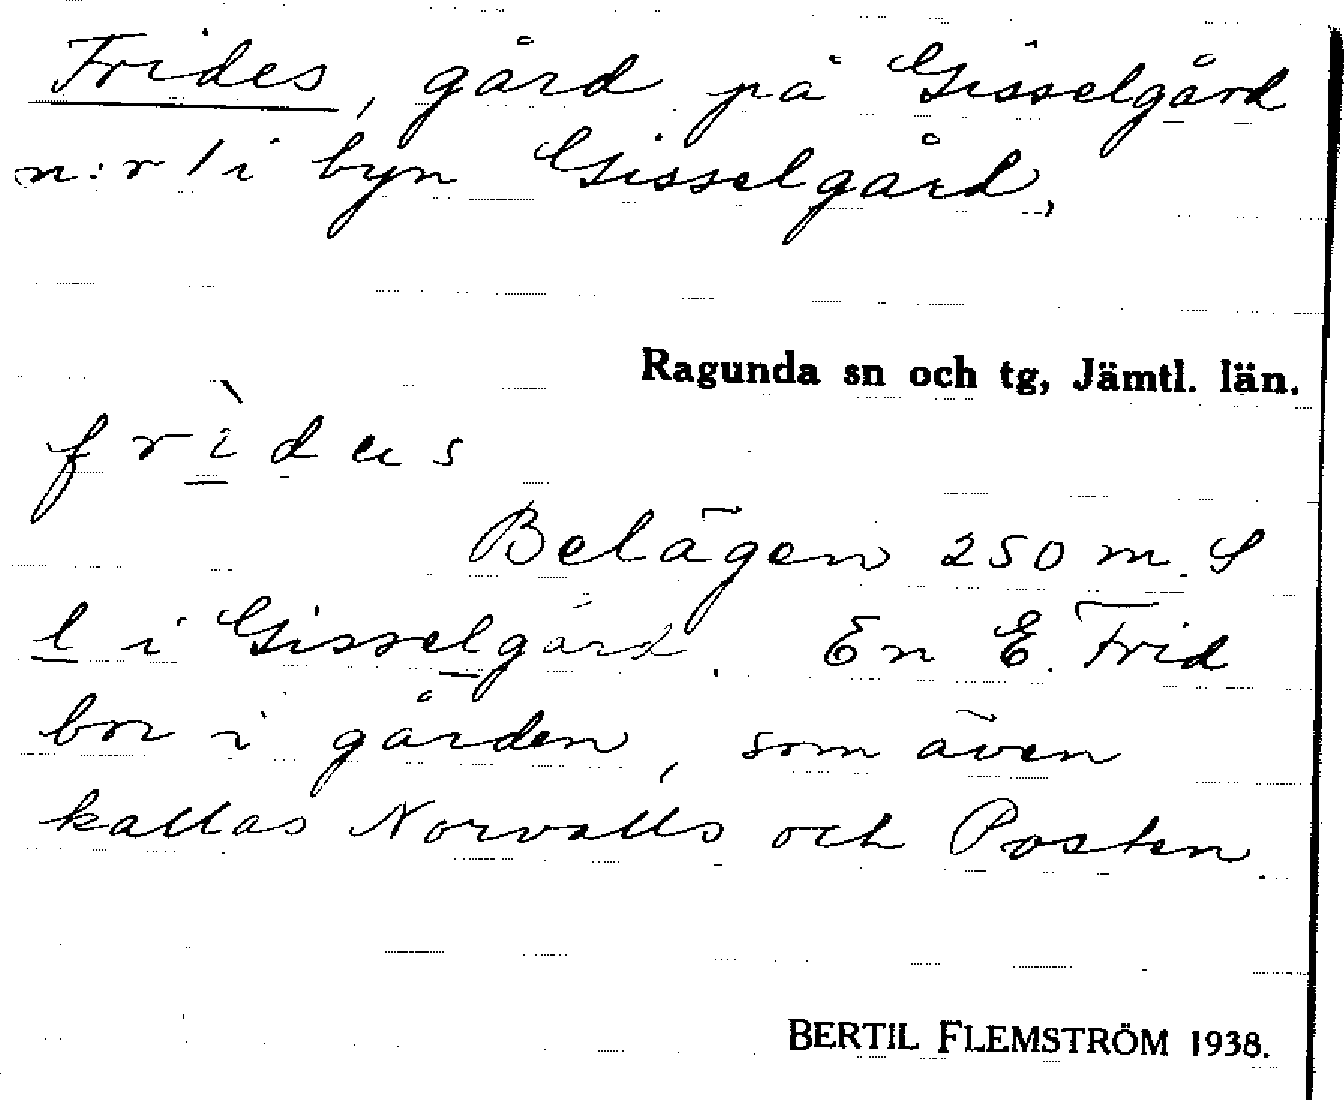 Frides, gård på Gisselgård
n:r 1 i byn Gisselgård,
Ragunda sn och tg, Jämtl. län.
frìdus
Belägen 250 m. S
l i Gisselgård. En E. Frid
bor i gården, som även
kallas Norvalls och Posten.
BERTIL FLEMSTRÖM 1938.